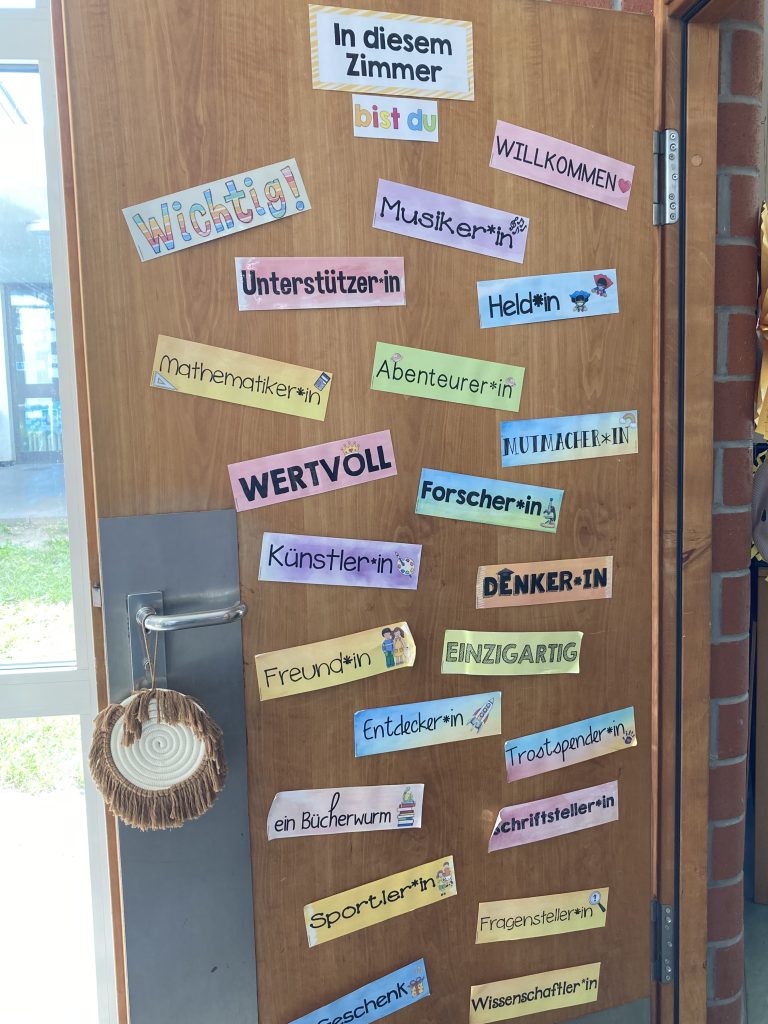 In diesem
Zimmer
bist du
WILLKOMMEN
Wichtig!
Musiker*in
Unterstützer*in
Held*in
Mathematiker*in
Abenteurer*in
MUTMACHER*IN
WERTVOLL
Forscher*in
Künstler*in
DENKER*IN
Freund*in
EINZIGARTIG
Entdecker*in
Trostspender*in
ein Bücherwurm
Schriftsteller*in
Sportler*in
Fragensteller*in
Geschenk
Wissenschaftler*in